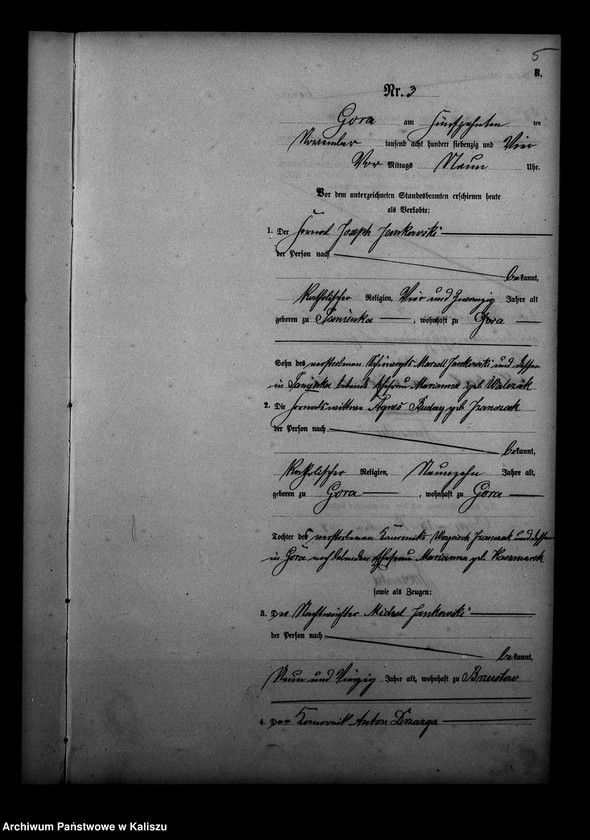 5
B.
Nr. 3
Gora am fünfzehnten ten
November tausend acht hundert siebenzig und Vier
Vor Mittags Neun Uhr.
Vor dem unterzeichneten Standesbeamten erschienen heute
als Verlobte:
1. Der Fornal Joseph Jankowski
der Person nach
bekannt,
Katholischer Religion, Vier und Zwanzig Jahre alt
geboren zu , wohnhaft zu Gora
Sohn des verstorbenen Marcell Jankowski und dessen
in lebende Ehefrau Marianna geb Walczak
2. Die Fornalswittwe Agnes geb Franczak
der Person nach
bekannt,
Katholischer Religion, Neunzehn Jahre alt,
geboren zu Gora , wohnhaft zu Gora
Tochter des verstorbenen Komorniks Woyciech Franczak und dessen
in Góra noch lebenden Ehefrau Marianna geb. Kaczmarek
sowie als Zeugen:
3. Der Nachtwächter Michael Jankowski
der Person nach
bekannt,
Neun und Vierzig Jahre alt, wohnhaft zu Brzustow
4. Der Komornik Anton
Archiwum Państwowe w Kaliszu